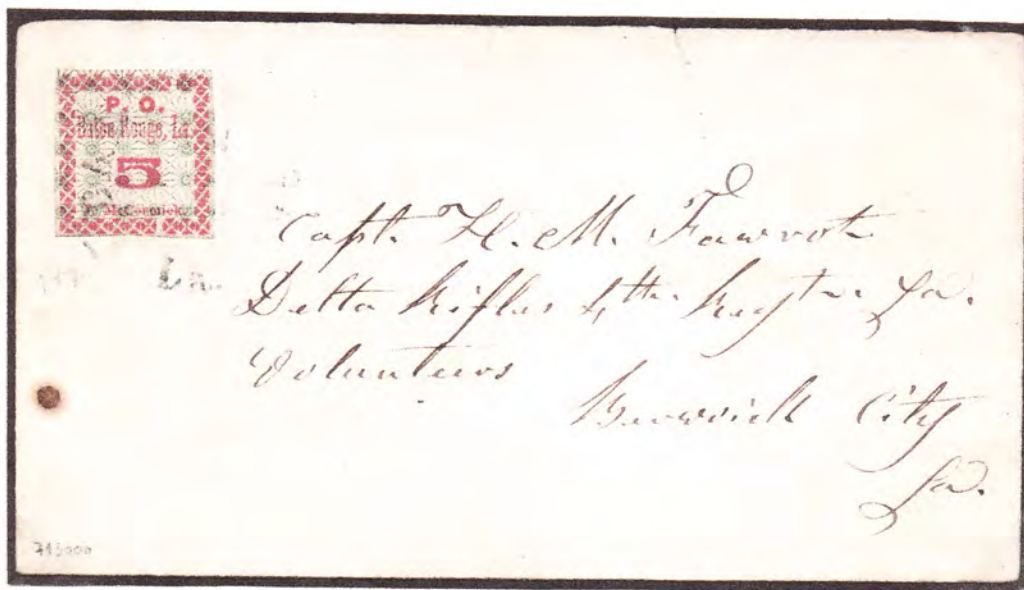 P. O.
Baton Rouge, La.
5
McCormick
La.
Capt. H. M. Favrot
Delta Rifles 4th. Regt. La.
Volunteers
Berwick City
La.